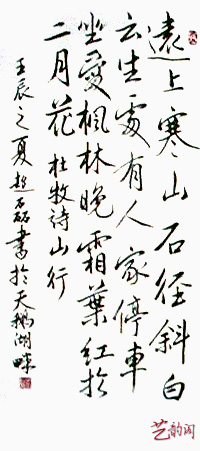 遠上寒山石径斜白
云生處有人家停車
坐愛楓林晚霜葉紅於
二月花 杜牧诗山行
壬辰之夏趙石磊書於天鹅湖畔
艺韵阁